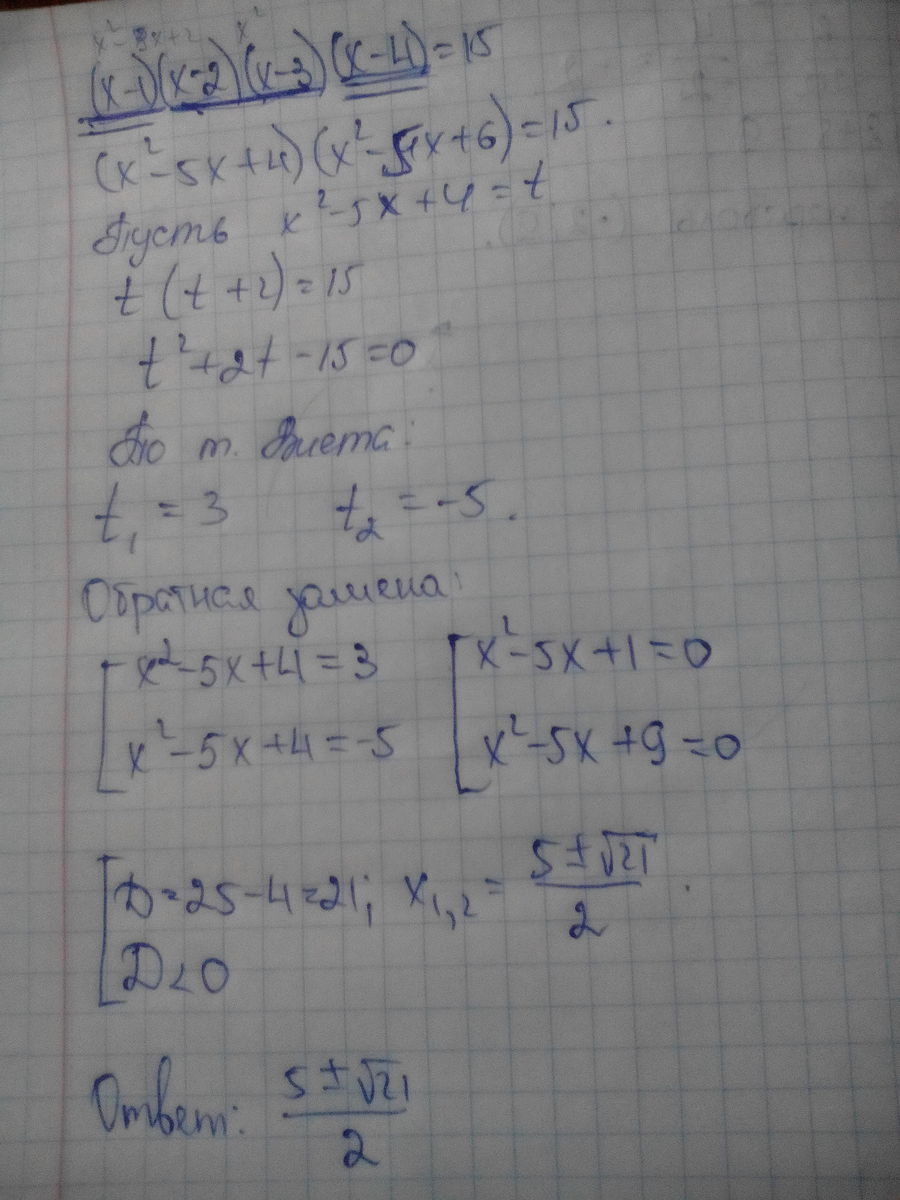 x²-3x+2 x²
(x-1)(x-2)(x-3)(x-4)=15
(x²-5x+4)(x²-5x+6)=15.
Пусть x²-5x+4=t
t(t+2)=15
t²+2t-15=0
По т. Виета:
t₁=3 t₂=-5.
Обратная замена:
[x²-5x+4=3 [x²-5x+1=0
x²-5x+4=-5 x²-5x+9=0
[D=25-4=21; x₁,₂=(5±√21)/2.
D<0
Ответ: (5±√21)/2